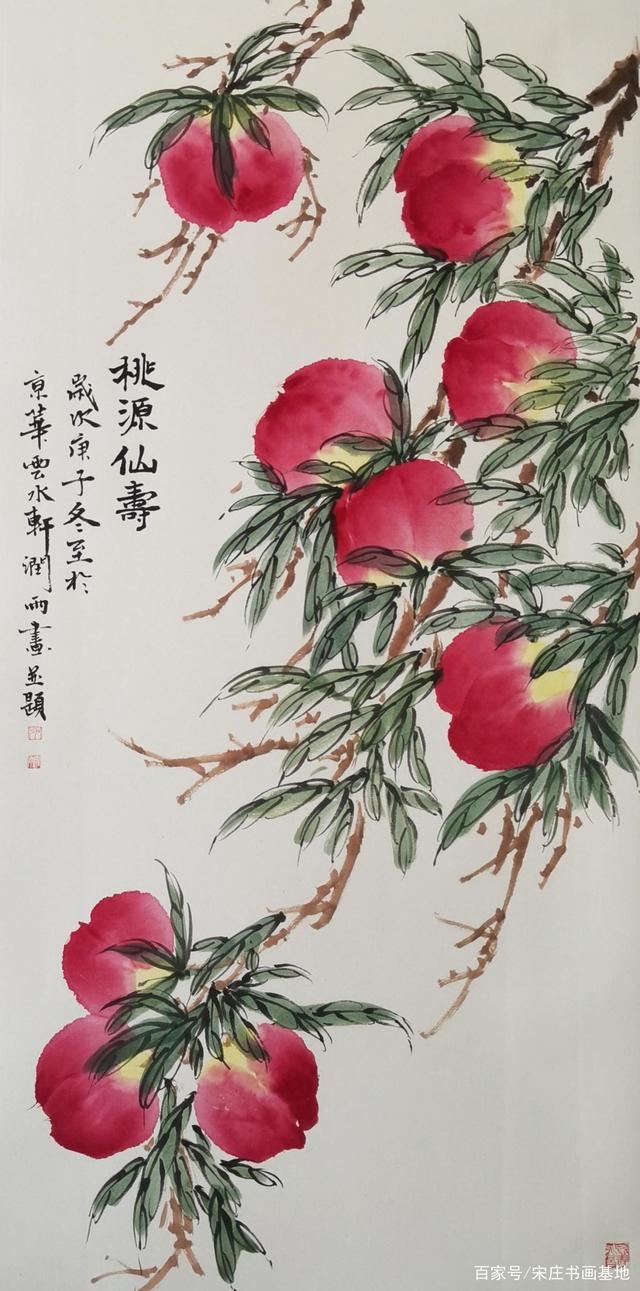 桃源仙壽
歲次庚子冬至於
京華雲水軒潤雨畫並題
百家号/宋庄书画基地